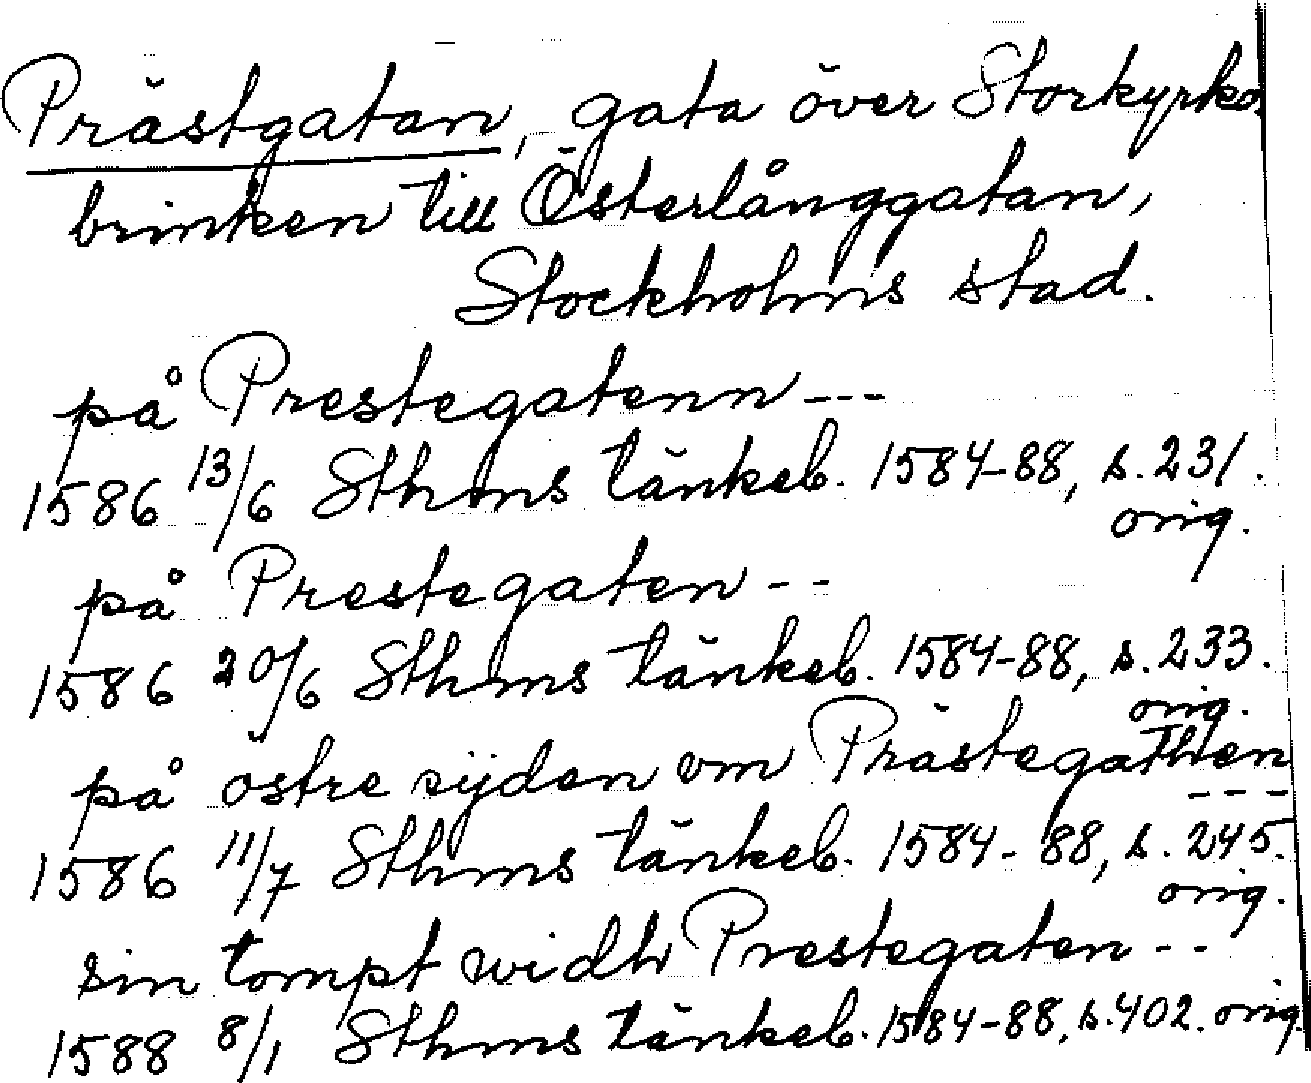 Prästgatan, gata över Storkyrko
brinken till Österlånggatan,
Stockholms stad.
på Prestegatenn ---
1586 13/6 Sthms tänkeb. 1584-88, s. 231.
orig.
på Prestegaten --
1586 20/6 Sthms tänkeb. 1584-88, s. 233.
orig.
på östre sijden om Prästegathen
---
1586 11/7 Sthms tänkeb. 1584-88, s. 245.
orig.
sin tompt widh Prestegaten --
1588 8/1 Sthms tänkeb. 1584-88, s. 402. orig.